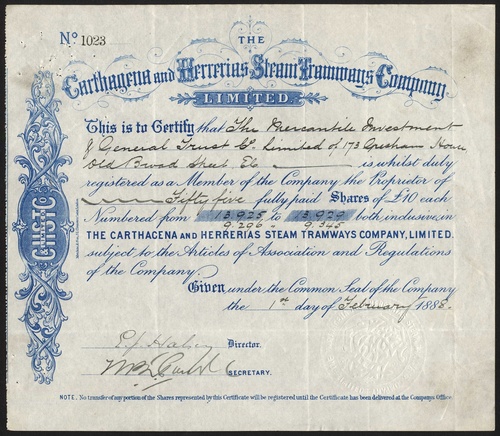 No. 1023
THE
Carthagena and Herrerias Steam Tramways Company
LIMITED.
This is to Certify that The Mercantile Investment
& General Trust Co. Limited of 173 Gresham House
Old Broad Street, EC is whilst duly
registered as a Member of the Company, the Proprietor of
Fifty five fully paid Shares of £10 each
Numbered from 13.925 to 13.929 both inclusive, in
9.296 " 9.345
THE CARTHAGENA AND HERRERIAS STEAM TRAMWAYS COMPANY, LIMITED.
subject to the Articles of Association and Regulations
of the Company.
Given under the Common Seal of the Company
the 1st day of February 1888.
Director.
SECRETARY.
NOTE. No transfer of any portion of the Shares represented by this Certificate will be registered until the Certificate has been delivered at the Companys Office.
C.H.S.T.C.